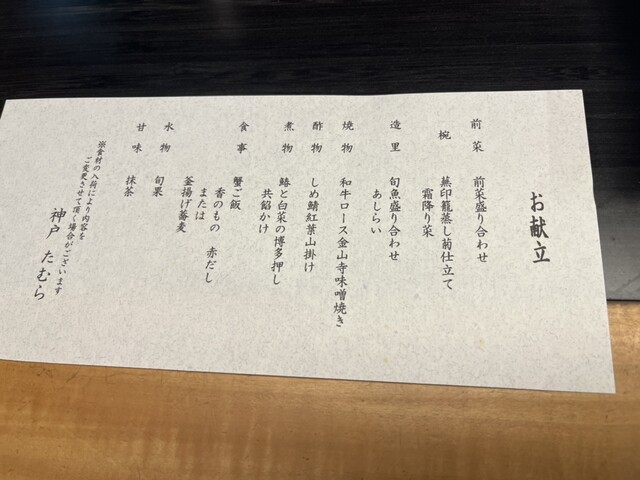 お献立
前菜 前菜盛り合わせ
椀 蕪印籠蒸し菊仕立て
霜降り菜
造里 旬魚盛り合わせ
あしらい
焼物 和牛ロース金山寺味噌焼き
酢物 しめ鯖紅葉山掛け
煮物 鰆と白菜の博多押し
共餡かけ
食事 蟹ご飯
香のもの 赤だし
または
釜揚げ蕎麦
水物 旬果
甘味 抹茶
※食材の入荷により内容を
ご変更させて頂く場合がございます
神戸 たむら